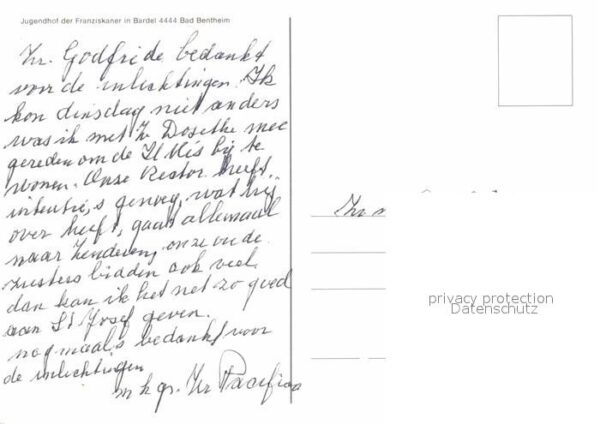 Jugendhof der Franziskaner in Bardel 4444 Bad Bentheim
Zr. Godfride bedankt
voor de inlichtingen. Ik
kon dinsdag niet anders
was ik met Zr Dosethe mee
gereden om de H Mis bij te
wonen. Onze Rector heeft
intentie,s genoeg, wat hij
over heeft, gaat allemaal
naar Zenderen, onze oude
zusters bidden ook veel
dan kan ik het net zo goed
aan St Josef geven.
nogmaals bedankt voor
de inlichtingen
m k gr. Zr Pacifica
Zr
privacy protection
Datenschutz